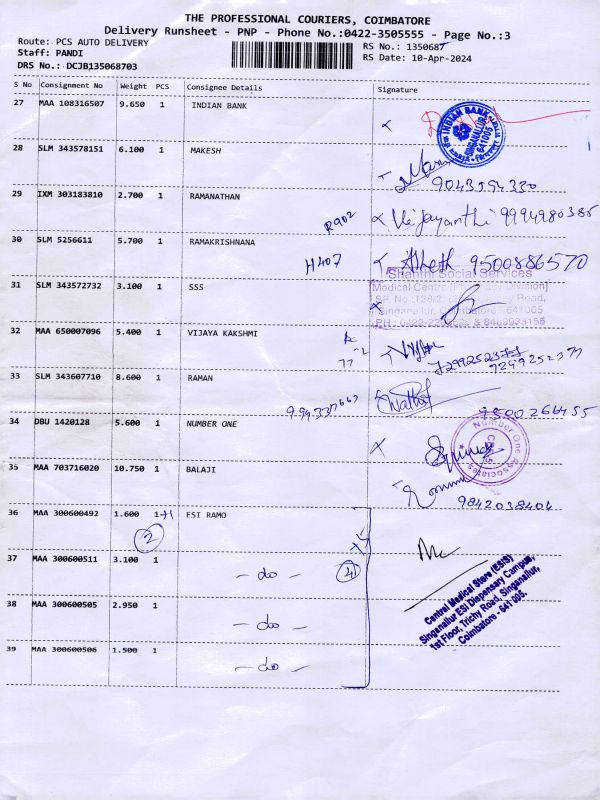 THE PROFESSIONAL COURIERS, COIMBATORE
Delivery Runsheet - PNP - Phone No.:0422-3505555 - Page No.:3
Route: PCS AUTO DELIVERY
RS No.: 1350687
Staff: PANDI
RS Date: 10-Apr-2024
DRS No.: DCJB135068703
S No Consignment No Weight PCS Consignee Details Signature
27 MAA 108316507 9.650 1 INDIAN BANK
INDIAN BANK
SINGANALLUR
641005
28 SLM 343578151 6.100 1 MAKESH
9043594330
29 IXM 303183810 2.700 1 RAMANATHAN
R902 Vijayanthi 9994980385
30 SLM 5256611 5.700 1 RAMAKRISHNANA
H407 9500886570
Shanthi Social Services
31 SLM 343572732 3.100 1 SSS
Medical Centre Division)
Road,
Singanallur, Coimbatore - 641005
32 MAA 650007096 5.400 1 VIJAYA KAKSHMI
7299252377
33 SLM 343607710 8.600 1 RAMAN
9500266455
34 DBU 1420128 5.600 1 NUMBER ONE
Number One Associates
35 MAA 703716020 10.750 1 BALAJI
9842038404
36 MAA 300600492 1.600 1+1 ESI RAMO
2
37 MAA 300600511 3.100 1 - do - 4
38 MAA 300600505 2.950 1 - do -
39 MAA 300600506 1.500 1 - do -
Central Medical Store (ESIS)
Singanallur ESI Dispensary Campus,
1st Floor, Trichy Road, Singanallur,
Coimbatore - 641 005.